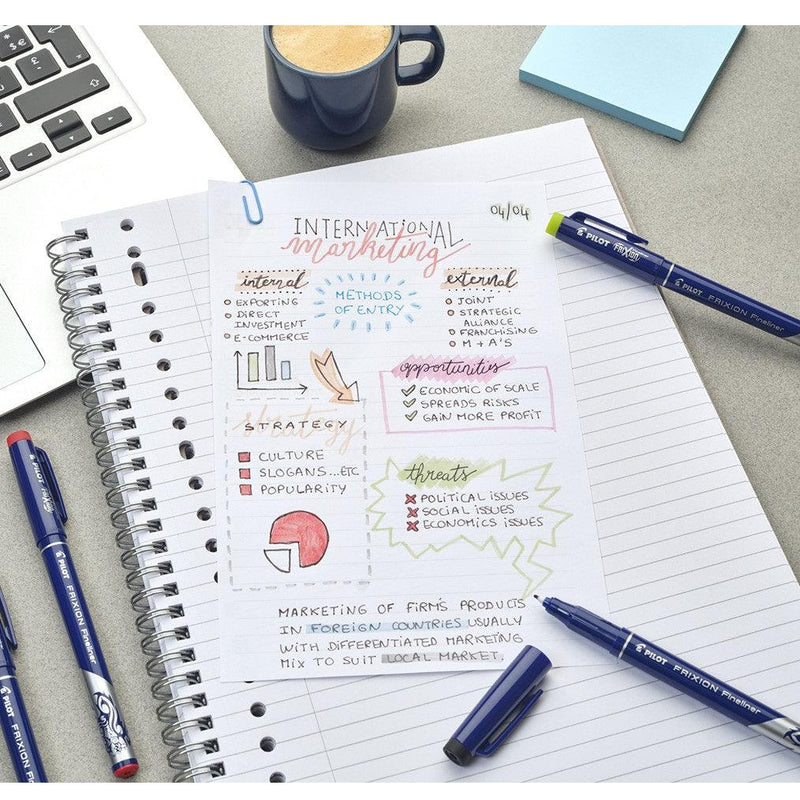 04/04
INTERNATIONAL
marketing
internal
EXPORTING
DIRECT
INVESTMENT
E-COMMERCE
METHODS
OF ENTRY
external
JOINT
STRATEGIC
ALLIANCE
FRANCHISING
M + A'S
opportunities
ECONOMIC OF SCALE
SPREADS RISKS
GAIN MORE PROFIT
strategy
STRATEGY
CULTURE
SLOGANS...ETC
POPULARITY
threats
POLITICAL ISSUES
SOCIAL ISSUES
ECONOMICS ISSUES
MARKETING OF FIRM'S PRODUCTS
IN FOREIGN COUNTRIES USUALLY
WITH DIFFERENTIATED MARKETING
MIX TO SUIT LOCAL MARKET.
PILOT FRIXION
PILOT FRIXION Fineliner
PILOT FRIXION Fineliner
PILOT FRIXION Fineliner
PILOT FRIXION Fineliner